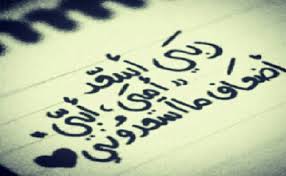 ربي أسعد
أمي، أبي
أضعاف ما أسعدوني